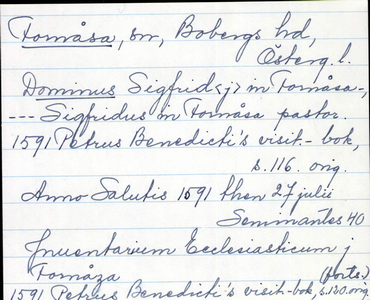 Fornåsa, sn, Bobergs hd,
Österg. l.
Dominus Sigfrid<j> in Fornåsa-,
--- Sigfridus in Fornåsa pastor.
1591 Petrus Benedicti's visit.-bok,
s. 116. orig.
Anno Salutis 1591 then 27 julii
Seminantes 40
Inuentarium Ecclesiasticum j
Fornåza (forts.)
1591 Petrus Benedicti's visit-bok, s. 130. orig